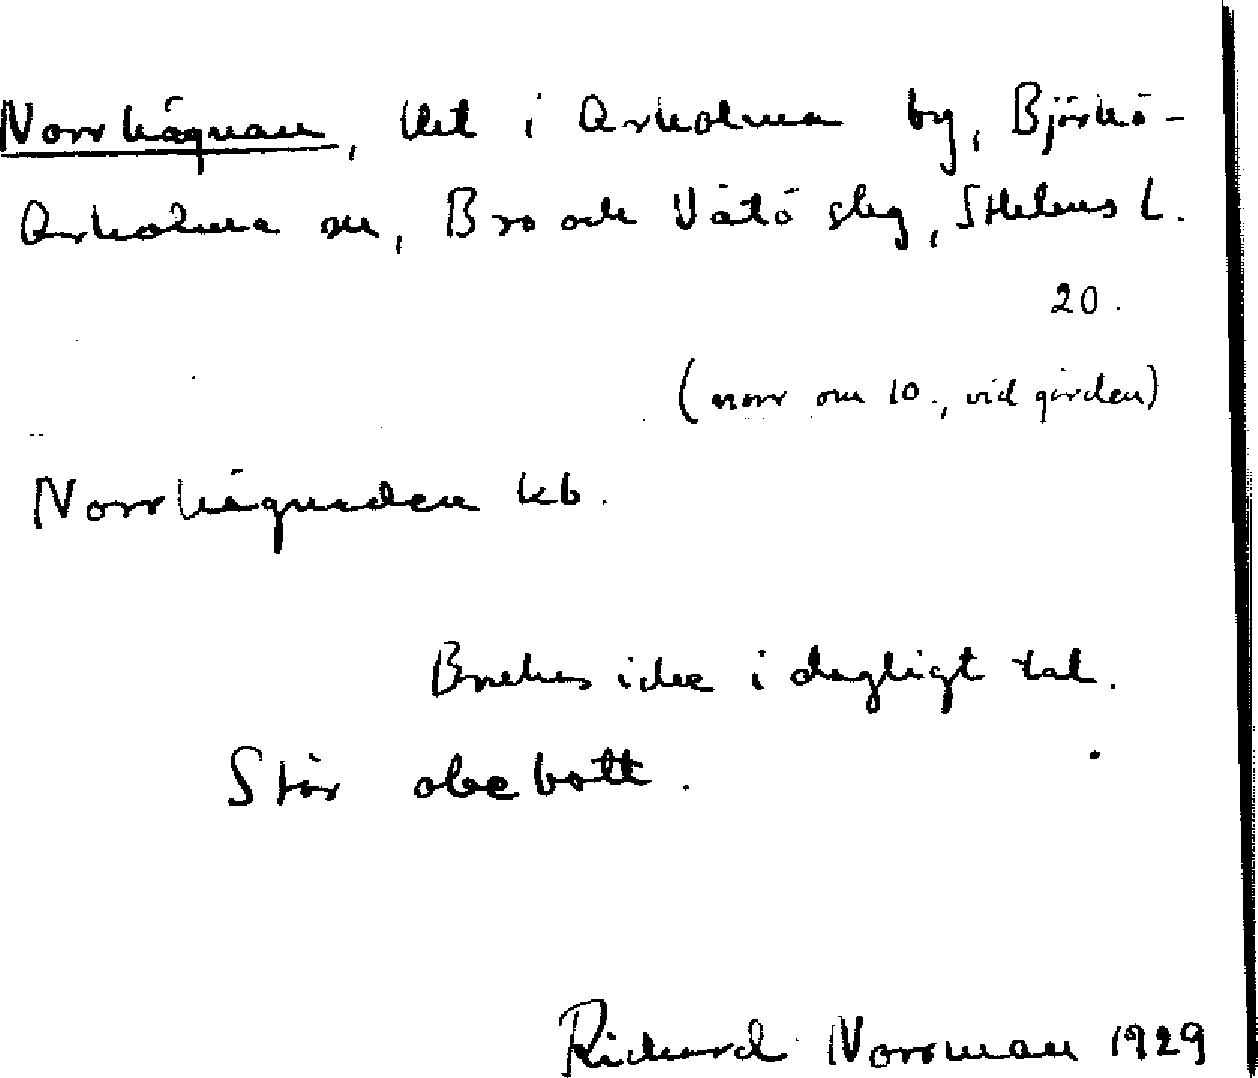 Norrhägnan, lht i Arholma by, Björkö-
Arholma sn, Bro och Vätö slg, Sthlms L.
20.
(norr om 10., vid gården)
Norrhägnaden kb.
Brukas icke i dagligt tal.
Står obebott.
Richard Norrman 1929